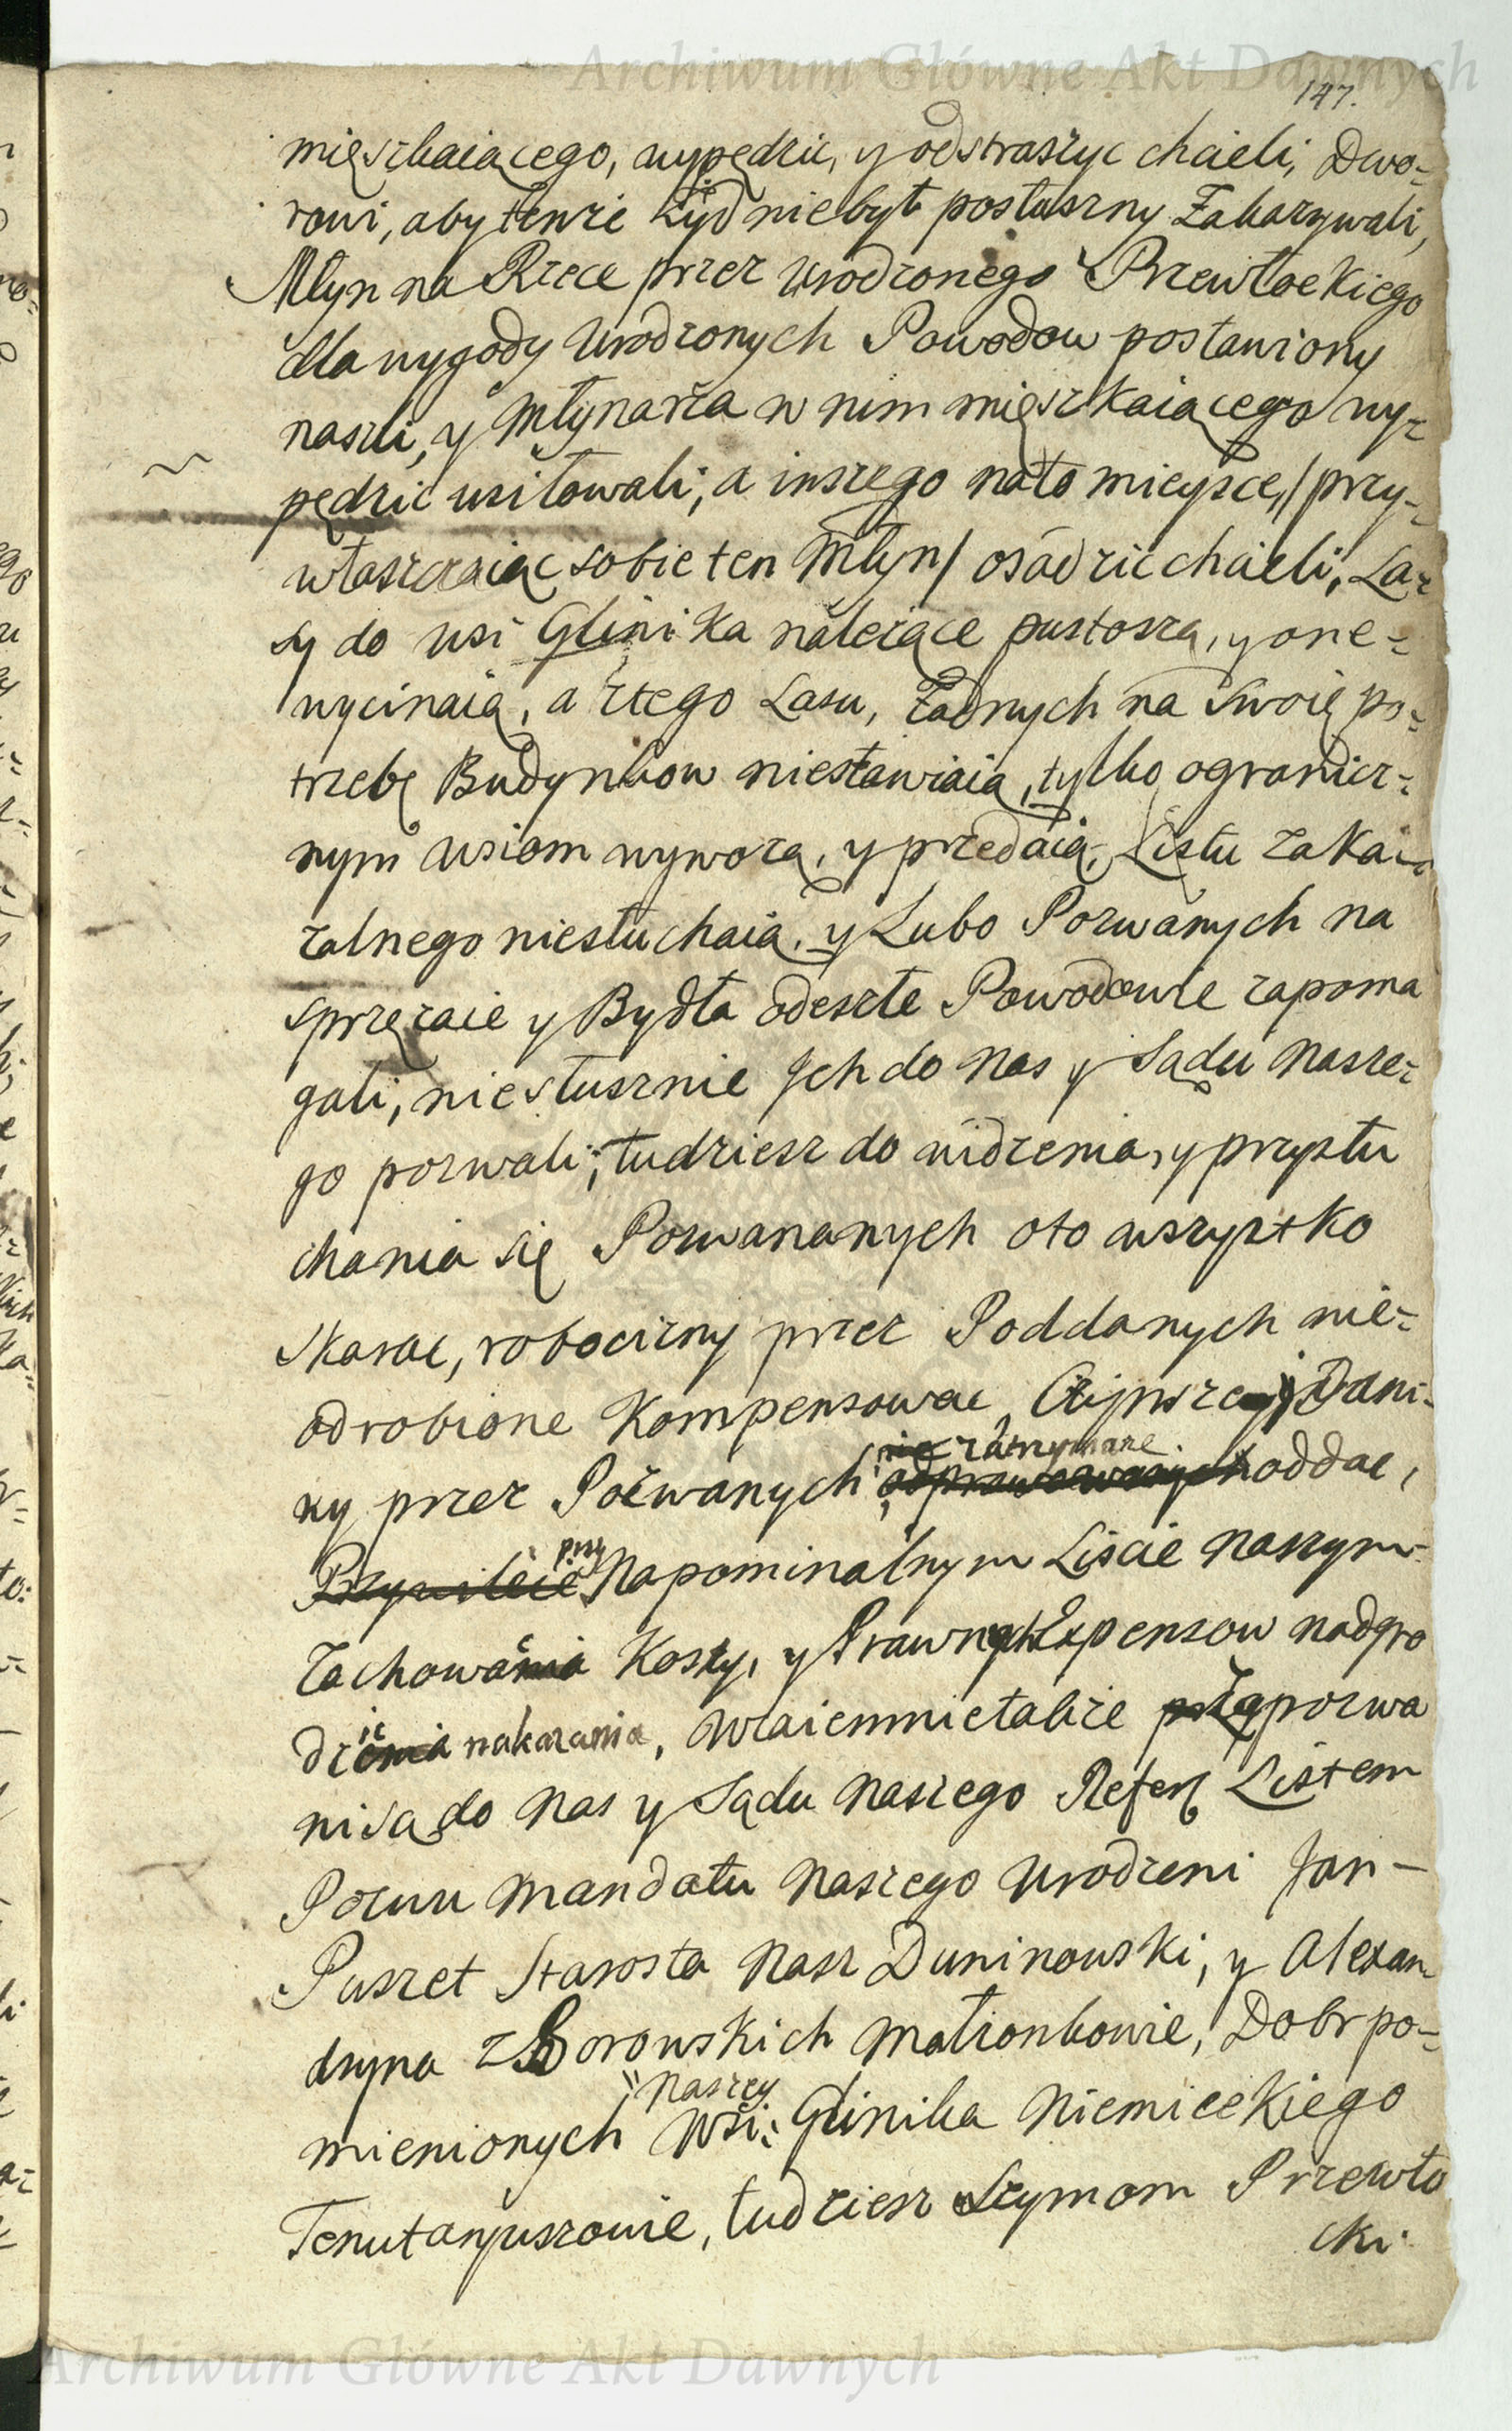 Archiwum Główne Akt Dawnych
147.
mięszkaiącego, wypędzic, y odstraszyc chcieli, Dwo-
rowi, aby tenze Żyd niebył posłuszny Zakazywali,
Młyn na Rzece przez Urodzonego Przewłockiego
dla wygody Urodzonych Powodow postawiony
naszli, y Młynarza w nim mięszkaiącego wy-
pędzic usiłowali, a inszego nato mieysce, / przy-
właszczaiąc sobie ten Młyn / osádzic chcieli, La-
sy do wsi Glinika należące pustoszą, y one-
wycinaią, a ztego Lasu, Żadnych na swoię po-
trzebę Budynkow niestawiaią, tylko ogranicz-
nym wsiom wywozą, y przedaią, Listu zakai-
zalnego niesłuchaią, y Lubo Pozwanych na
sprzęzaie y Bydła odeszłe Powodowie zapoma
gali, niesłusznie Jch do Nas y Sądu Nasze-
go pozwali, tudziesz do widzenia, y przysłu
chania się Pozwananych oto wszystko
skarac, robocizny przez Poddanych nie-
odrobione Kompensowac, Czynsze y Dani-
ny przez Pozwanych nie zatrzymane oddac,
przy Napominalnym Liscie Naszym-
Zachowac Koszty, y Prawnych Expensow nadgro
dzic nakazania, Wzaiemnie takze pozwa
ni są do Nas y Sądu Naszego Refeń Listem
Pozwu Mandatu Naszego Urodzeni Jan-
Puszet Starosta Nasz Duninowski, y Alexan
dryna z Borowskich Małzonkowie, Dobr po-
mienionych Naszey Wsi Glinika Niemieckiego
Tenutaryuszowie, tudziesz Szymon Przewło
cki
Archiwum Główne Akt Dawnych